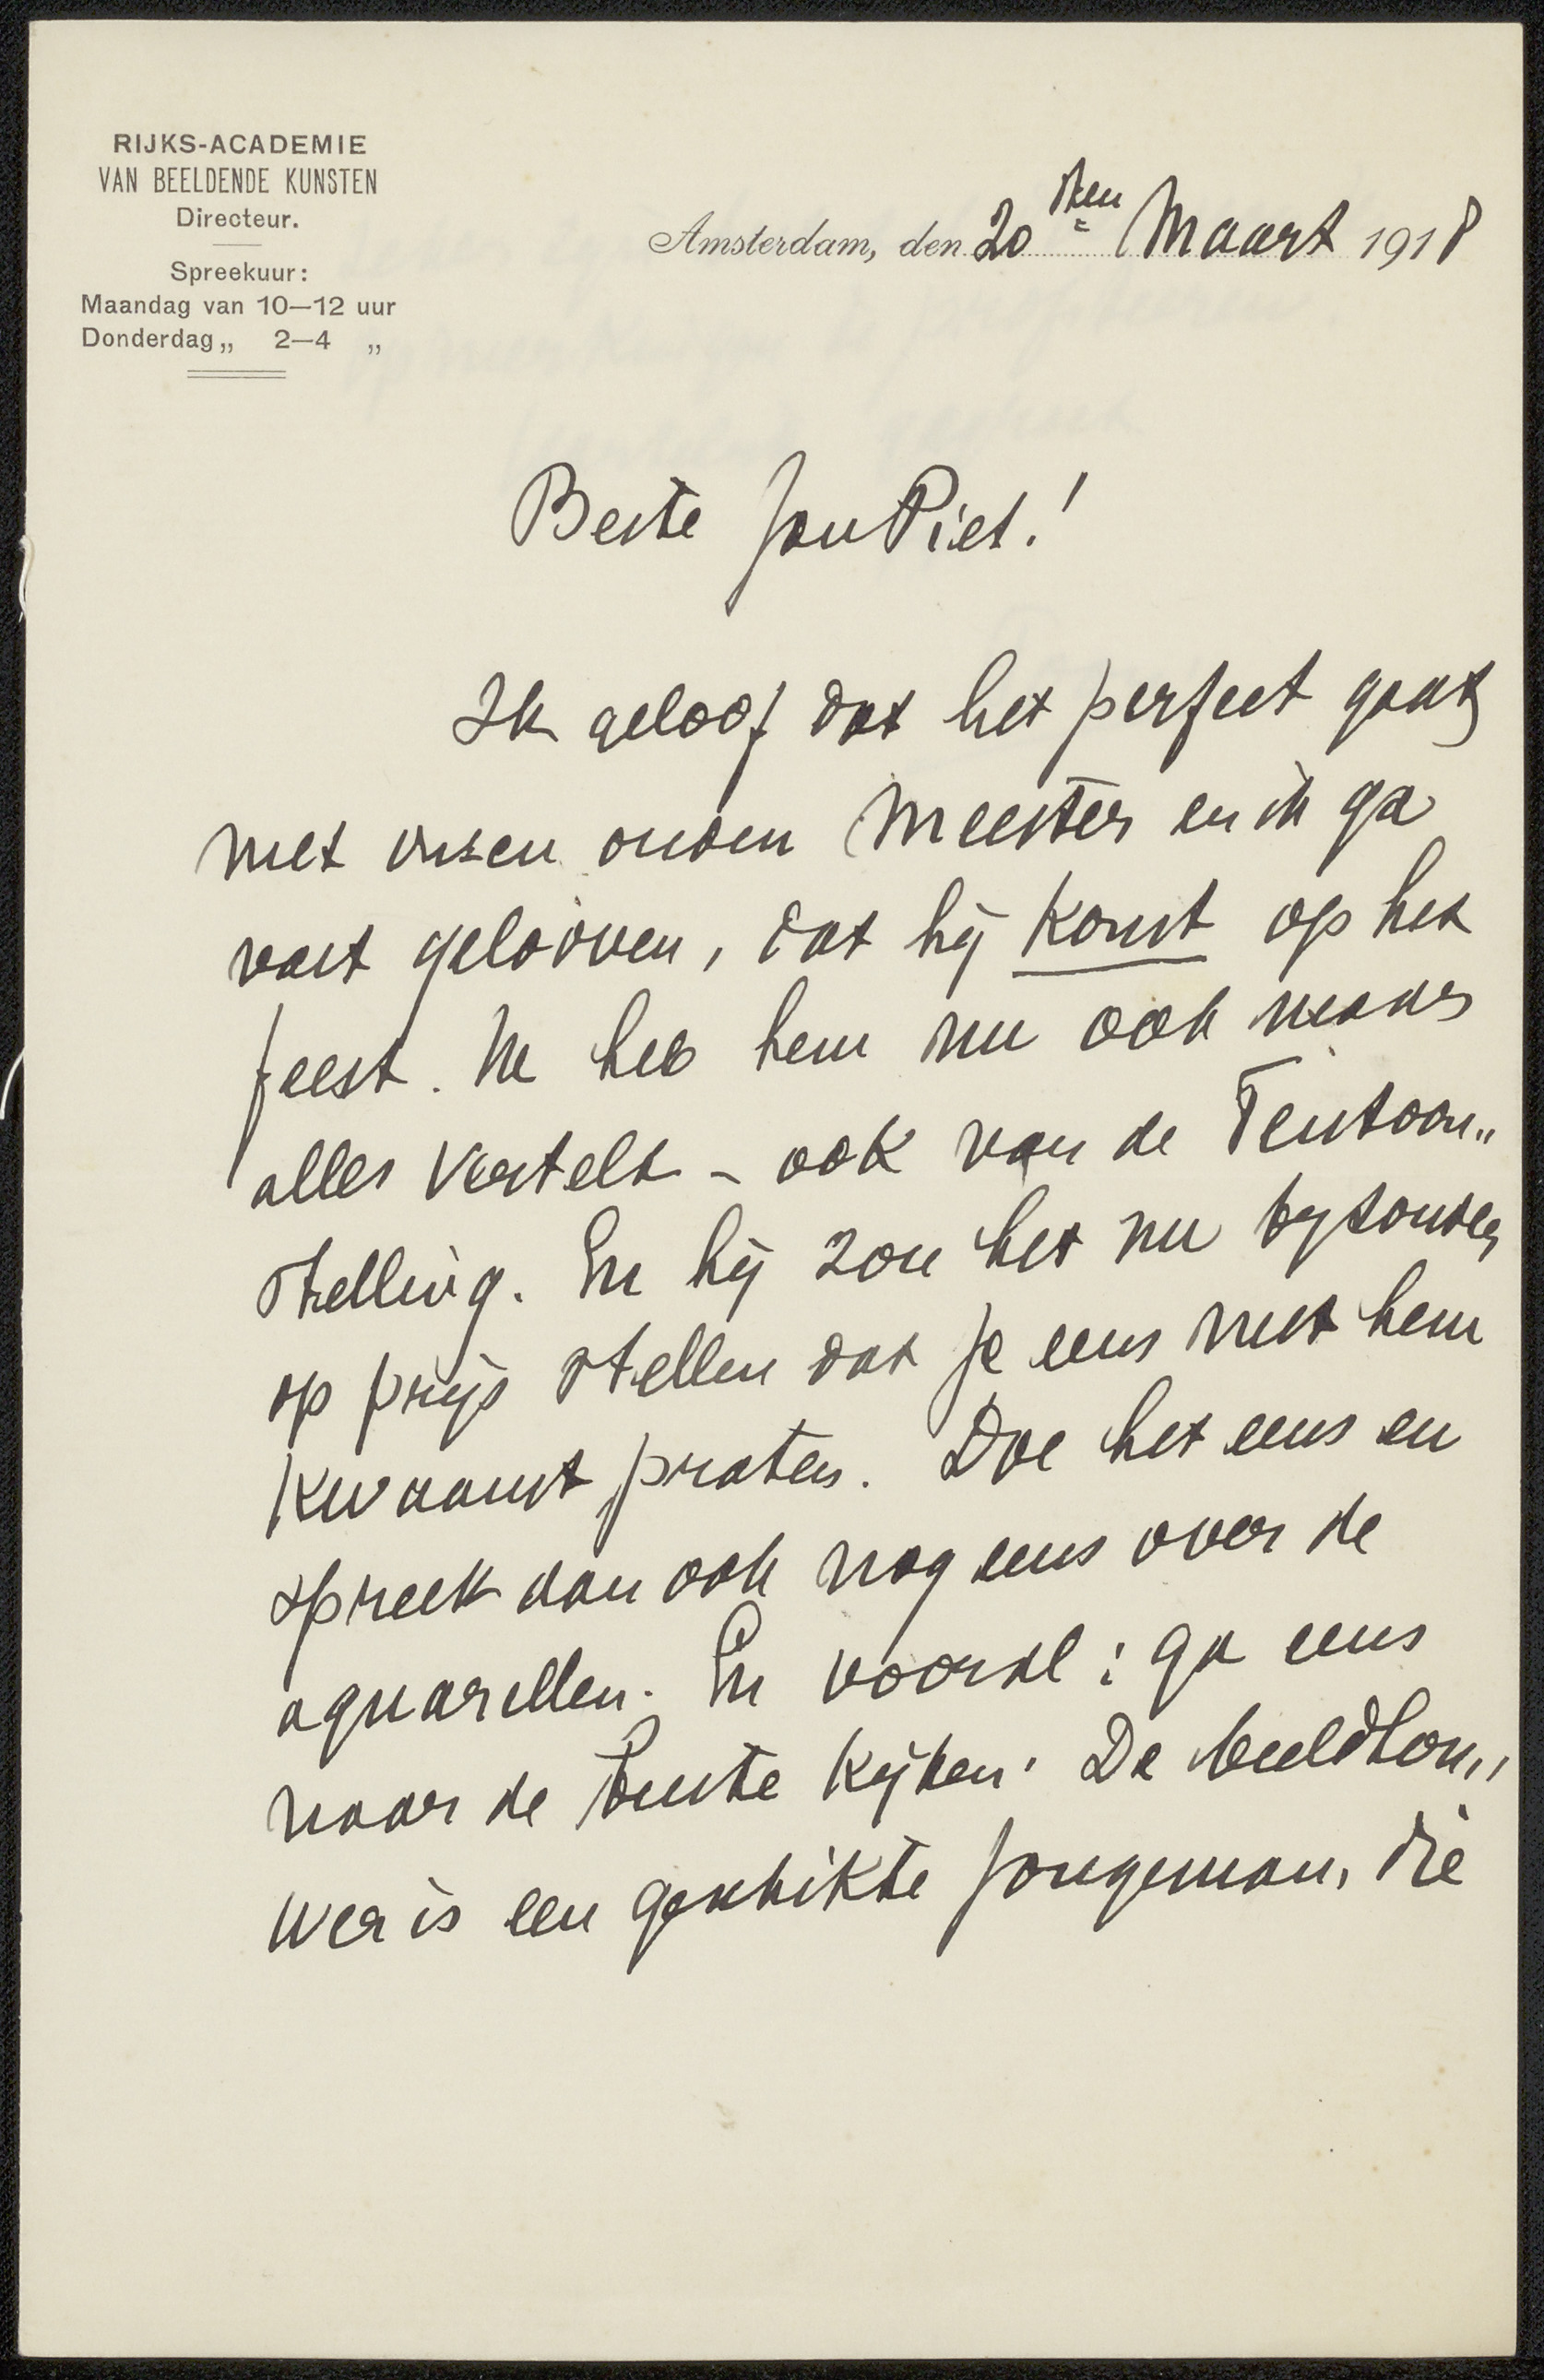 RIJKS-ACADEMIE
VAN BEELDENDE KUNSTEN
Directeur.
Spreekuur:
Maandag van 10—12 uur
Donderdag „ 2—4 „
Amsterdam, den 20sten Maart 1918
Beste Jan Piet!
Ik geloof dat het perfect gaat
met onzen ouden Meester en ik ga
vast gelooven, dat hij komt op het
feest. Ik heb hem nu ook maar
alles verteld – ook van de Tentoon„
stelling. En hij zou het nu byzonder
op prijs stellen dat je eens met hem
kwaamt praten. Doe het eens en
spreek dan ook nog eens over de
aquarellen. En vooral: ga eens
naar de buste kijken. De beeldhou„
wer is een geschikte jongeman, die